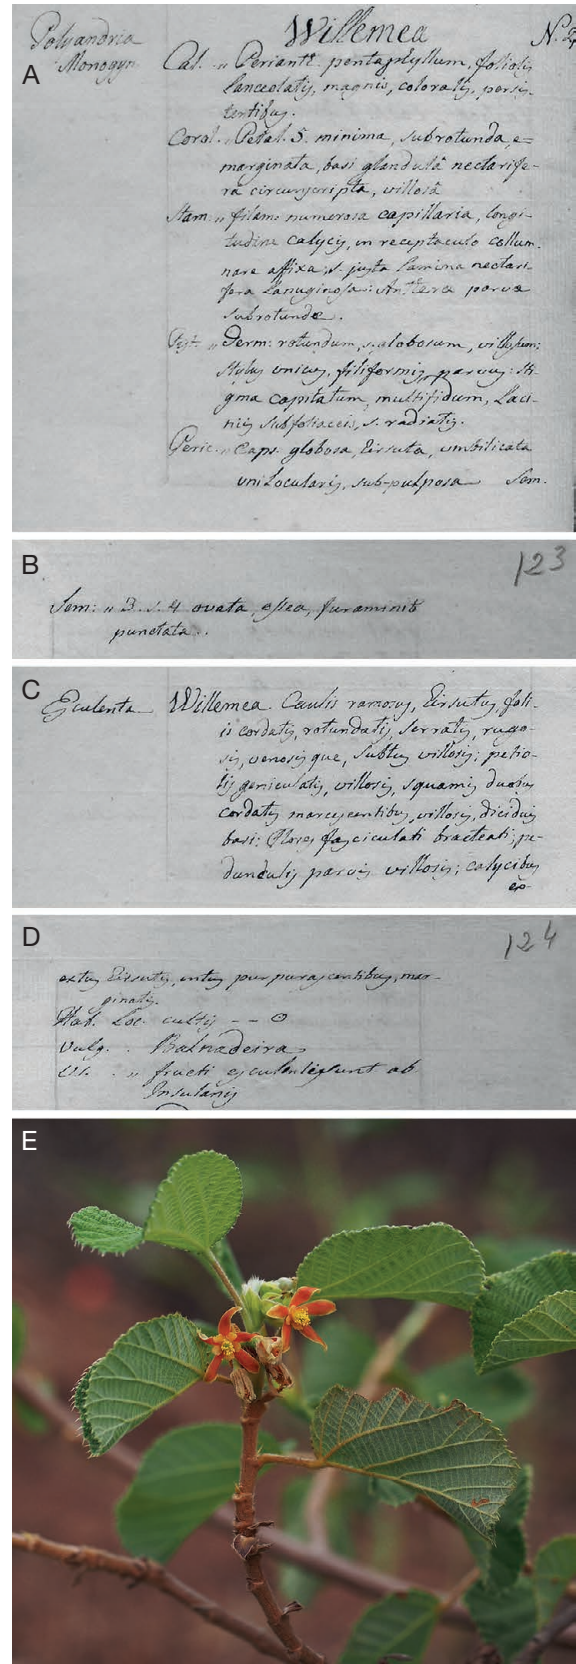 Willemea N. 2
Polyandria
Monogyn.
A
Cal. „ Perianth. pentaphyllum, foliolis
lanceolatis, magnis, coloratis, persis-
tentibus.
Corol. „ Petal. 5. minima, subrotunda, e=
marginata, basi glandulâ nectarife-
ra circumscripta, villosâ
Stam: „ filam: numerosa capillaria, longi-
tudine calycis, in receptaculo collum-
nare affixa, s. juxta lamina nectari-
fera lanuginosa: Antherae parvae
subrotundae.
Pist. „ Germ: rotundum, s. globosum, villosum:
Stylus unicus, filiformis, parvus: sti-
gma capitatum, multifidum, Laci-
niis subfoliaceis, s. radiatis.
Peric. „ Caps. globosa, hirsuta, umbilicata
unilocularis, sub-pulposa Sem.
B
123
Sem: „ 3. s. 4 ovata, ossea, foraminib
punctata.
C
Esculenta Willemea Caulis ramosus, hirsutus, foli-
is cordatis, rotundatis, serratis, rugo-
sis, venosisque, subtus villosis; petio-
lis geniculatis, villosis, squamis duobus
cordatis marcescentibus, villosis, diciduis
basi: flores fasciculati bracteati; pe-
dunculis parvis villosis; calycibus
ex-
D
124
extus hirsutis, intus purpurascentibus, mar-
ginatis.
Hab. Loc. cultis -- ⊙
Vulg. . Balnadeira
Us. . „ fructi esculenti sunt ab
Insulanis
E